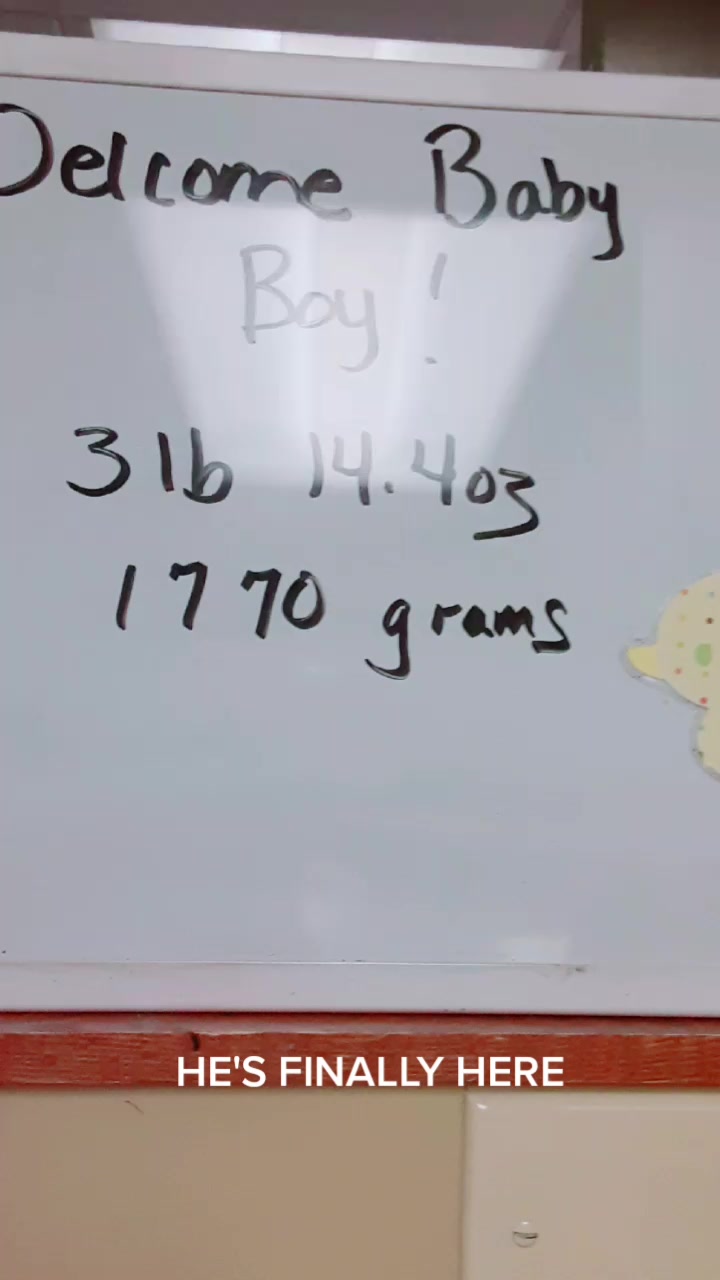 Welcome Baby
Boy!
3 lb 14.4oz
1770 grams
HE'S FINALLY HERE